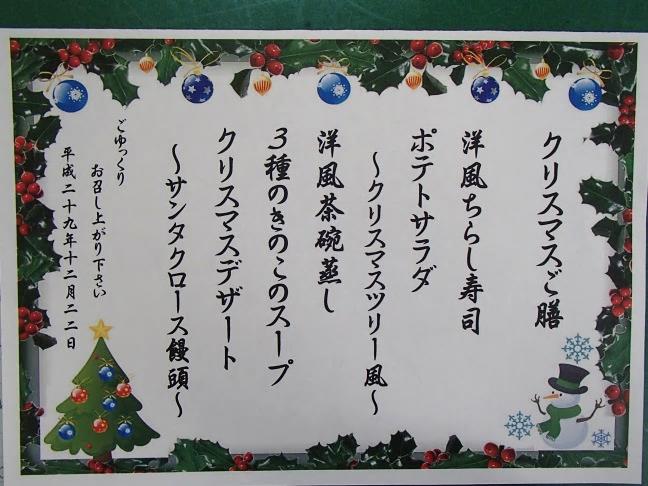 クリスマスご膳
洋風ちらし寿司
ポテトサラダ
～クリスマスツリー風～
洋風茶碗蒸し
３種のきのこのスープ
クリスマスデザート
～サンタクロース饅頭～
ごゆっくり
お召し上がり下さい
平成二十九年十二月二二日